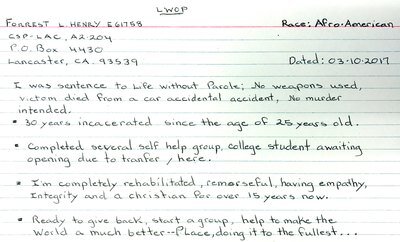 LWOP
FORREST L. HENRY E61758 Race: Afro-American
CSP-LAC, A2-204
P.O. Box 4430
Lancaster, CA. 93539 Dated: 03-10-2017
I was sentence to Life Without Parole; No weapons used,
victom died from a car accidental accident, No murder
intended.
• 30 years incacerated since the age of 25 years old.
• Completed several self help group, college student awaiting
opening due to tranfer, here.
• I'm completely rehabilitated, remorseful, having empathy,
Integrity and a christian for over 15 years now.
• Ready to give back, start a group, help to make the
World a much better--Place, doing it to the fullest...